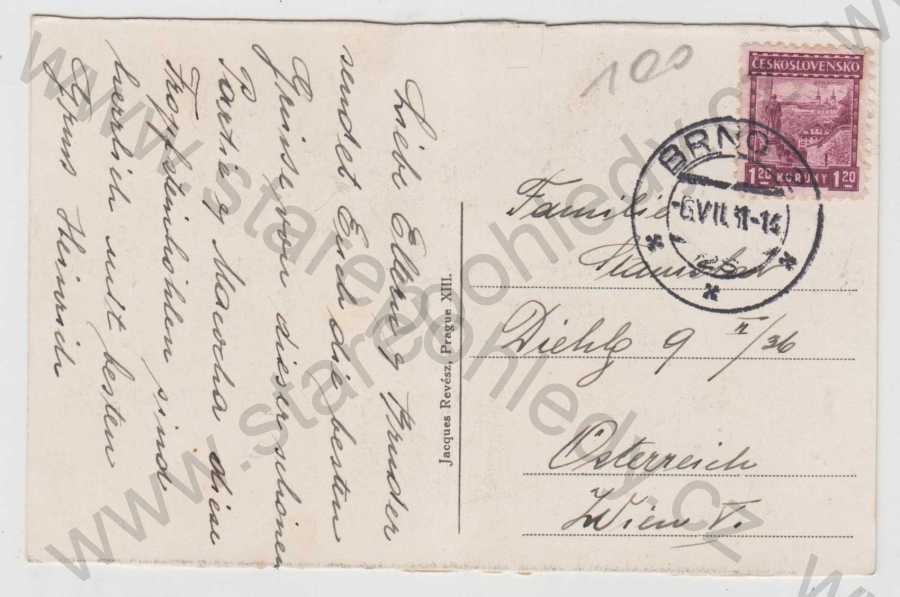 Liebe Eltern, Bruder
sendet Euch die besten
Grüsse von dieser schönen
Partie, Mazocha diese
Tropfsteinhöhlen sind
herrlich mit besten
Gruss Heinrich
Jacques Revész, Prague XIII.
100
ČESKOSLOVENSKO
1 20 KORUNY 1 20
BRNO
-6.VII.
Familie
Diehlg 9 II/36
Österreich
Wien V.
www.stareopohledy.cz